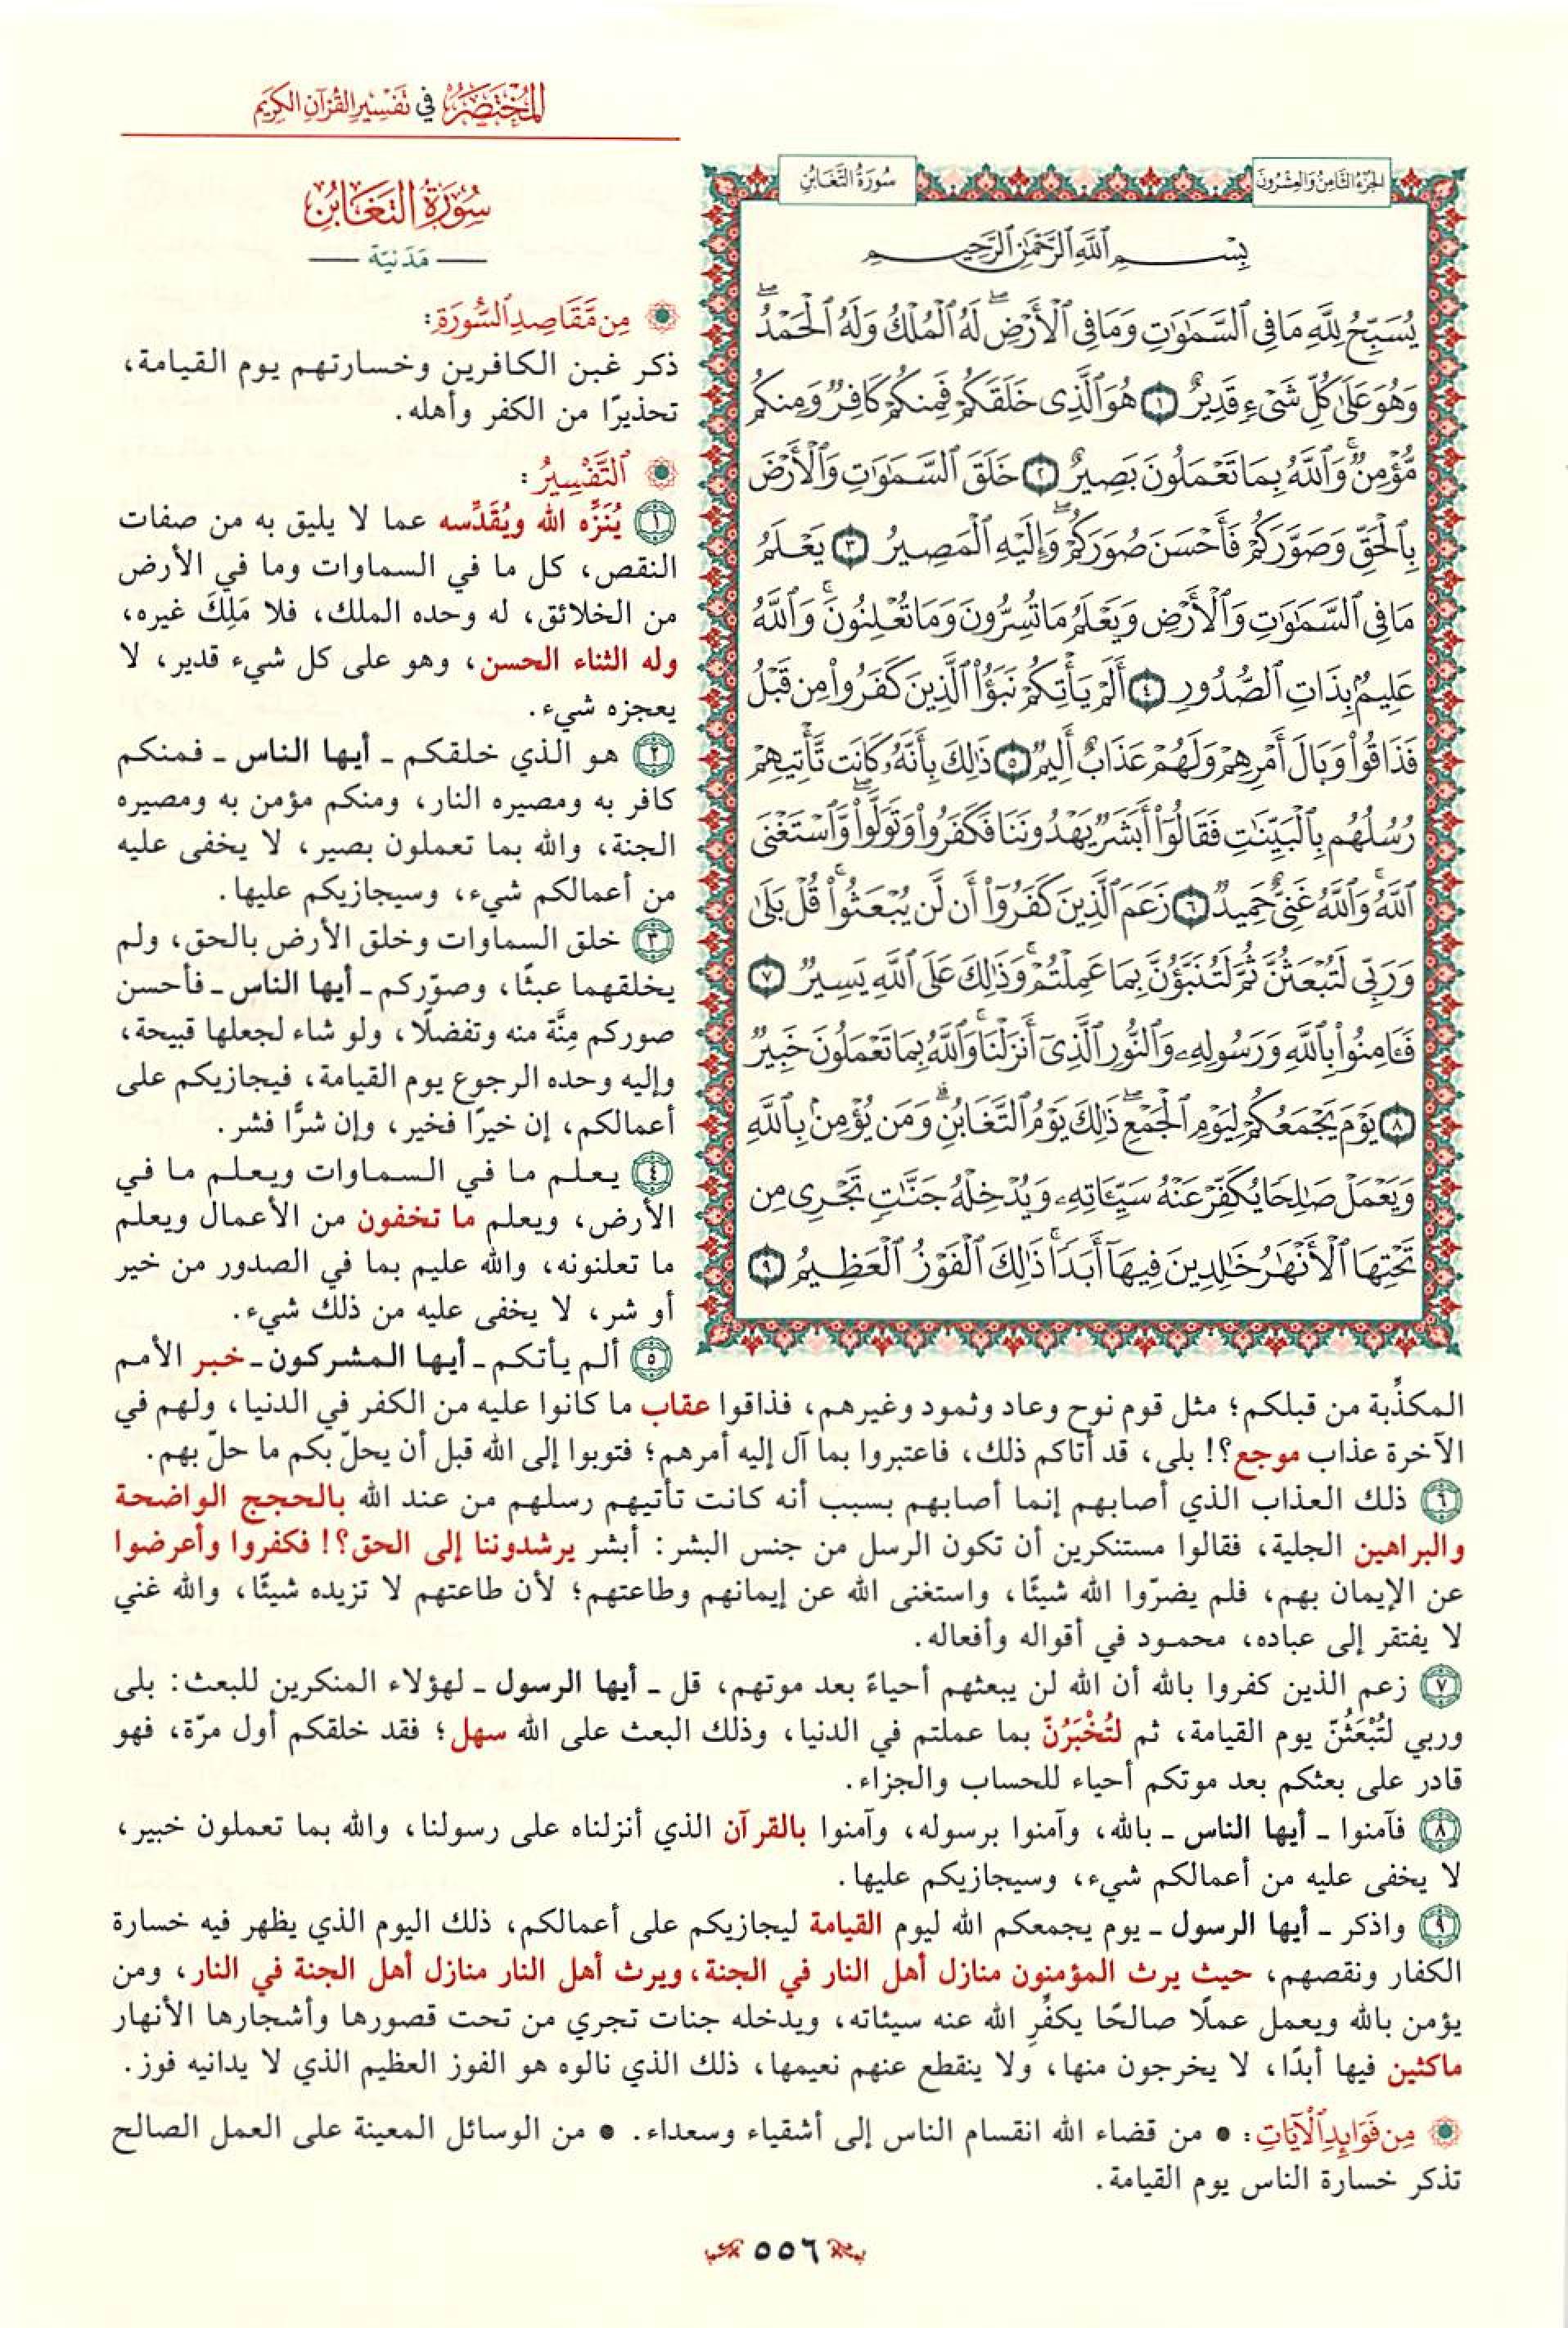 المُخْتَصَرُ في تَفْسِيرِ القُرْآنِ الكَرِيمِ
الجُزْءُ الثَّامِنُ وَالعِشْرُونَ
سُورَةُ التَّغَابُنِ
بِسْمِ ٱللَّهِ ٱلرَّحْمَٰنِ ٱلرَّحِيمِ
يُسَبِّحُ لِلَّهِ مَا فِي ٱلسَّمَٰوَٰتِ وَمَا فِي ٱلْأَرْضِۖ لَهُ ٱلْمُلْكُ وَلَهُ ٱلْحَمْدُۖ
وَهُوَ عَلَىٰ كُلِّ شَىْءٍ قَدِيرٌ ١ هُوَ ٱلَّذِى خَلَقَكُمْ فَمِنكُمْ كَافِرٌ وَمِنكُم
مُّؤْمِنٌۚ وَٱللَّهُ بِمَا تَعْمَلُونَ بَصِيرٌ ٢ خَلَقَ ٱلسَّمَٰوَٰتِ وَٱلْأَرْضَ
بِٱلْحَقِّ وَصَوَّرَكُمْ فَأَحْسَنَ صُوَرَكُمْۖ وَإِلَيْهِ ٱلْمَصِيرُ ٣ يَعْلَمُ
مَا فِي ٱلسَّمَٰوَٰتِ وَٱلْأَرْضِ وَيَعْلَمُ مَا تُسِرُّونَ وَمَا تُعْلِنُونَۚ وَٱللَّهُ
عَلِيمٌۢ بِذَاتِ ٱلصُّدُورِ ٤ أَلَمْ يَأْتِكُمْ نَبَؤُاْ ٱلَّذِينَ كَفَرُواْ مِن قَبْلُ
فَذَاقُواْ وَبَالَ أَمْرِهِمْ وَلَهُمْ عَذَابٌ أَلِيمٌ ٥ ذَٰلِكَ بِأَنَّهُۥ كَانَت تَّأْتِيهِمْ
رُسُلُهُم بِٱلْبَيِّنَٰتِ فَقَالُوٓاْ أَبَشَرٌ يَهْدُونَنَا فَكَفَرُواْ وَتَوَلَّواْۖ وَّٱسْتَغْنَى
ٱللَّهُۚ وَٱللَّهُ غَنِىٌّ حَمِيدٌ ٦ زَعَمَ ٱلَّذِينَ كَفَرُوٓاْ أَن لَّن يُبْعَثُواْۚ قُلْ بَلَىٰ
وَرَبِّى لَتُبْعَثُنَّ ثُمَّ لَتُنَبَّؤُنَّ بِمَا عَمِلْتُمْۚ وَذَٰلِكَ عَلَى ٱللَّهِ يَسِيرٌ ٧
فَـَٔامِنُواْ بِٱللَّهِ وَرَسُولِهِۦ وَٱلنُّورِ ٱلَّذِىٓ أَنزَلْنَاۚ وَٱللَّهُ بِمَا تَعْمَلُونَ خَبِيرٌ
٨ يَوْمَ يَجْمَعُكُمْ لِيَوْمِ ٱلْجَمْعِۖ ذَٰلِكَ يَوْمُ ٱلتَّغَابُنِۗ وَمَن يُؤْمِنۢ بِٱللَّهِ
وَيَعْمَلْ صَٰلِحًا يُكَفِّرْ عَنْهُ سَيِّـَٔاتِهِۦ وَيُدْخِلْهُ جَنَّٰتٍ تَجْرِى مِن
تَحْتِهَا ٱلْأَنْهَٰرُ خَٰلِدِينَ فِيهَآ أَبَدًاۚ ذَٰلِكَ ٱلْفَوْزُ ٱلْعَظِيمُ ٩
سُورَةُ التَّغَابُنِ
مَدَنيَّة
مِن مَّقَاصِدِ ٱلسُّورَةِ:
ذكر غبن الكافرين وخسارتهم يوم القيامة،
تحذيرًا من الكفر وأهله.
ٱلتَّفْسِيرُ:
١ يُنَزِّه الله ويُقَدِّسه عما لا يليق به من صفات
النقص، كل ما في السماوات وما في الأرض
من الخلائق، له وحده الملك، فلا مَلِكَ غيره،
وله الثناء الحسن، وهو على كل شيء قدير، لا
يعجزه شيء.
٢ هو الذي خلقكم ـ أيها الناس ـ فمنكم
كافر به ومصيره النار، ومنكم مؤمن به ومصيره
الجنة، والله بما تعملون بصير، لا يخفى عليه
من أعمالكم شيء، وسيجازيكم عليها.
٣ خلق السماوات وخلق الأرض بالحق، ولم
يخلقهما عبثًا، وصوّركم ـ أيها الناس ـ فأحسن
صوركم مِنَّة منه وتفضلًا، ولو شاء لجعلها قبيحة،
وإليه وحده الرجوع يوم القيامة، فيجازيكم على
أعمالكم، إن خيرًا فخير، وإن شرًّا فشر.
٤ يعلم ما في السماوات ويعلم ما في
الأرض، ويعلم ما تخفون من الأعمال ويعلم
ما تعلنونه، والله عليم بما في الصدور من خير
أو شر، لا يخفى عليه من ذلك شيء.
٥ ألم يأتكم ـ أيها المشركون ـ خبر الأمم
المكذِّبة من قبلكم؛ مثل قوم نوح وعاد وثمود وغيرهم، فذاقوا عقاب ما كانوا عليه من الكفر في الدنيا، ولهم في
الآخرة عذاب موجع؟! بلى، قد أتاكم ذلك، فاعتبروا بما آل إليه أمرهم؛ فتوبوا إلى الله قبل أن يحلّ بكم ما حلّ بهم.
٦ ذلك العذاب الذي أصابهم إنما أصابهم بسبب أنه كانت تأتيهم رسلهم من عند الله بالحجج الواضحة
والبراهين الجلية، فقالوا مستنكرين أن تكون الرسل من جنس البشر: أبشر يرشدوننا إلى الحق؟! فكفروا وأعرضوا
عن الإيمان بهم، فلم يضرّوا الله شيئًا، واستغنى الله عن إيمانهم وطاعتهم؛ لأن طاعتهم لا تزيده شيئًا، والله غني
لا يفتقر إلى عباده، محمود في أقواله وأفعاله.
٧ زعم الذين كفروا بالله أن الله لن يبعثهم أحياءً بعد موتهم، قل ـ أيها الرسول ـ لهؤلاء المنكرين للبعث: بلى
وربي لتُبْعَثُنّ يوم القيامة، ثم لتُخْبَرُنّ بما عملتم في الدنيا، وذلك البعث على الله سهل؛ فقد خلقكم أول مرّة، فهو
قادر على بعثكم بعد موتكم أحياء للحساب والجزاء.
٨ فآمنوا ـ أيها الناس ـ بالله، وآمنوا برسوله، وآمنوا بالقرآن الذي أنزلناه على رسولنا، والله بما تعملون خبير،
لا يخفى عليه من أعمالكم شيء، وسيجازيكم عليها.
٩ واذكر ـ أيها الرسول ـ يوم يجمعكم الله ليوم القيامة ليجازيكم على أعمالكم، ذلك اليوم الذي يظهر فيه خسارة
الكفار ونقصهم، حيث يرث المؤمنون منازل أهل النار في الجنة، ويرث أهل النار منازل أهل الجنة في النار، ومن
يؤمن بالله ويعمل عملًا صالحًا يكفِّرِ الله عنه سيئاته، ويدخله جنات تجري من تحت قصورها وأشجارها الأنهار
ماكثين فيها أبدًا، لا يخرجون منها، ولا ينقطع عنهم نعيمها، ذلك الذي نالوه هو الفوز العظيم الذي لا يدانيه فوز.
مِن فَوَابِدِ ٱلْآيَاتِ: • من قضاء الله انقسام الناس إلى أشقياء وسعداء. • من الوسائل المعينة على العمل الصالح
تذكر خسارة الناس يوم القيامة.
٥٥٦